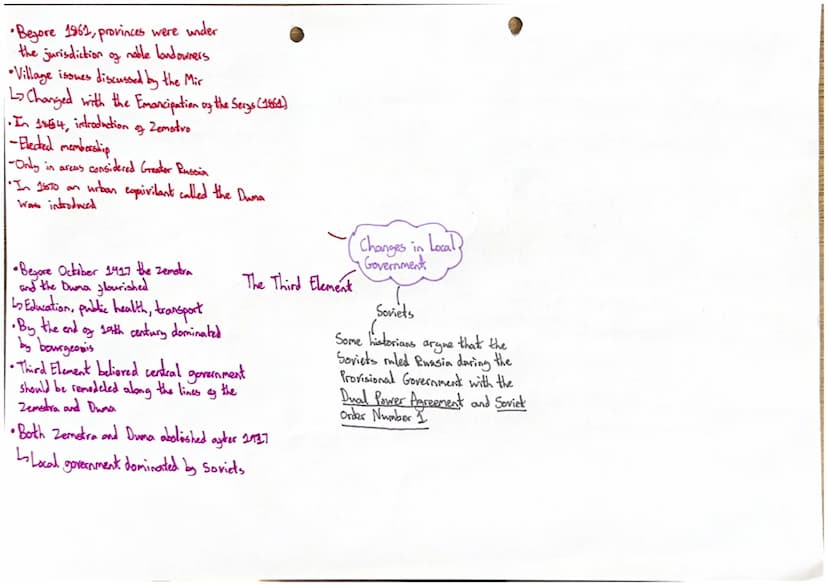 • Before 1861, provinces were under
the jurisdiction of noble landowners
• Village issues discussed by the Mir
↳ Changed with the Emancipation of the Serfs (1861)
• In 1864, introduction of Zemstvo
- Elected membership
- Only in areas considered Greater Russia
• In 1870 an urban equivilant called the Duma
was introduced
Changes in Local
Government
The Third Element
Soviets
Some historians argue that the
Soviets ruled Russia during the
Provisional Government with the
Dual Power Agreement and Soviet
Order Number 1
• Before October 1917 the Zemstva
and the Duma flourished
↳ Education, public health, transport
• By the end of 19th century dominated
by bourgeois
• Third Element believed central government
should be remodeled along the lines of the
Zemstva and Duma
• Both Zemstva and Duma abolished after 1917
↳ Local government dominated by Soviets